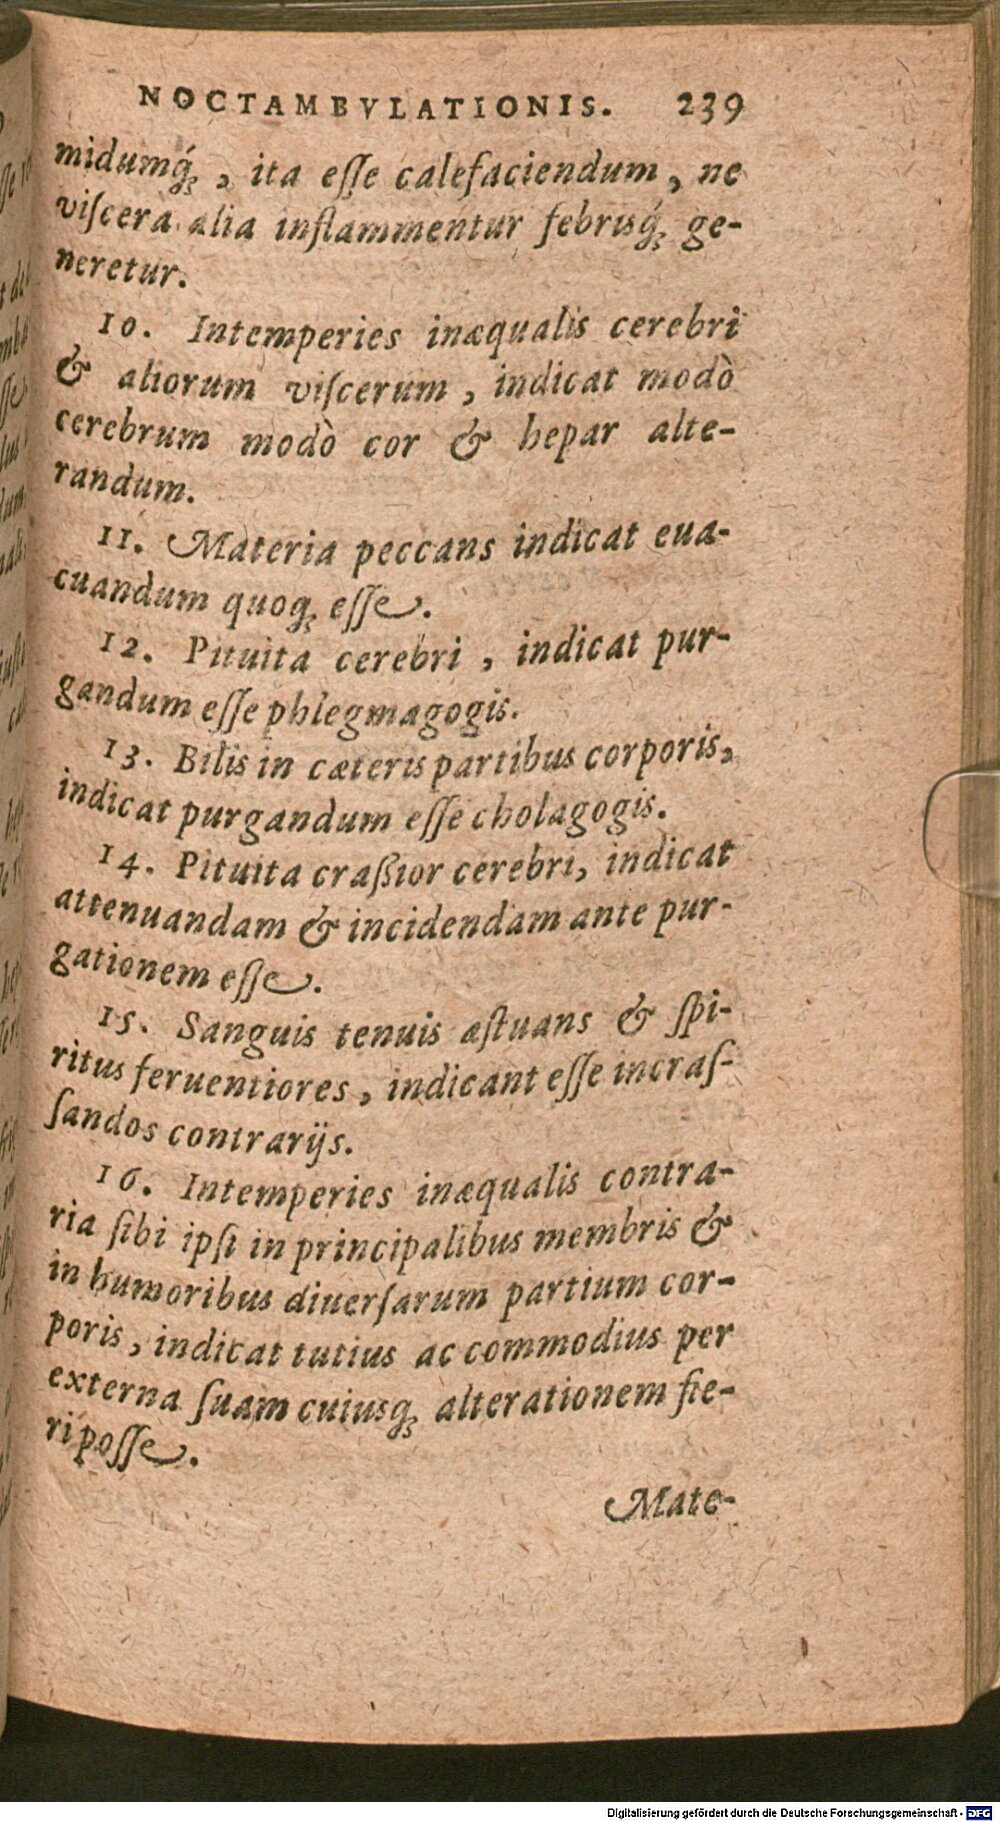 NOCTAMBVLATIONIS. 239
midumq́ꝫ, ita eſſe calefaciendum, ne
viſcera alia inflammentur febrisq́ꝫ ge-
neretur.
10. Intemperies inæqualis cerebri
& aliorum viſcerum, indicat modò
cerebrum modò cor & hepar alte-
randum.
11. Materia peccans indicat eua-
cuandum quoqꝫ eſſe.
12. Pituita cerebri, indicat pur-
gandum eſſe phlegmagogis.
13. Bilis in cæteris partibus corporis,
indicat purgandum eſſe cholagogis.
14. Pituita craßior cerebri, indicat
attenuandam & incidendam ante pur-
gationem eſſe.
15. Sanguis tenuis æſtuans & ſpi-
ritus feruentiores, indicant eſſe incraſ-
ſandos contrarijs.
16. Intemperies inæqualis contra-
ria ſibi ipſi in principalibus membris &
in humoribus diuerſarum partium cor-
poris, indicat tutius ac commodius per
externa ſuam cuiusqꝫ alterationem fie-
ri poſſe.
Mate-
Digitalisierung gefördert durch die Deutsche Forschungsgemeinschaft - DFG